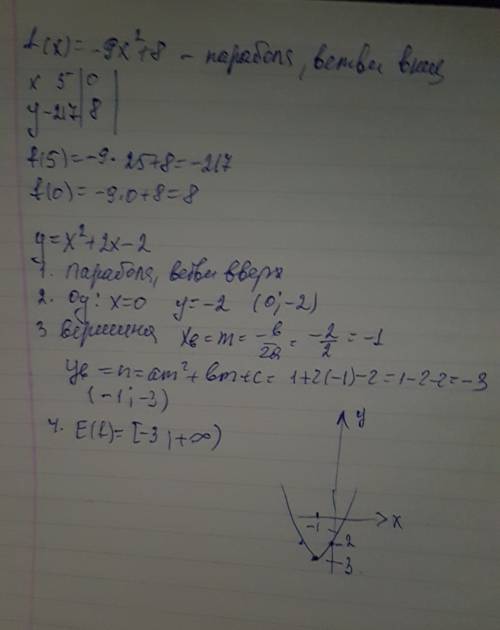 f(x) = -9x²+8 - парабола, ветви вниз
x 5 | 0 |
y -217 | 8 |
f(5) = -9 · 25+8 = -217
f(0) = -9·0+8 = 8
y = x²+2x-2
1. парабола, ветви вверх
2. Oy: x=0 y=-2 (0; -2)
3 вершина xв = m = -b/2a = -2/2 = -1
yв = n = am²+bm+c = 1+2(-1)-2 = 1-2-2 = -3
(-1; -3)
4. E(f) = [-3; +∞)
y
-1 x
-2
-3